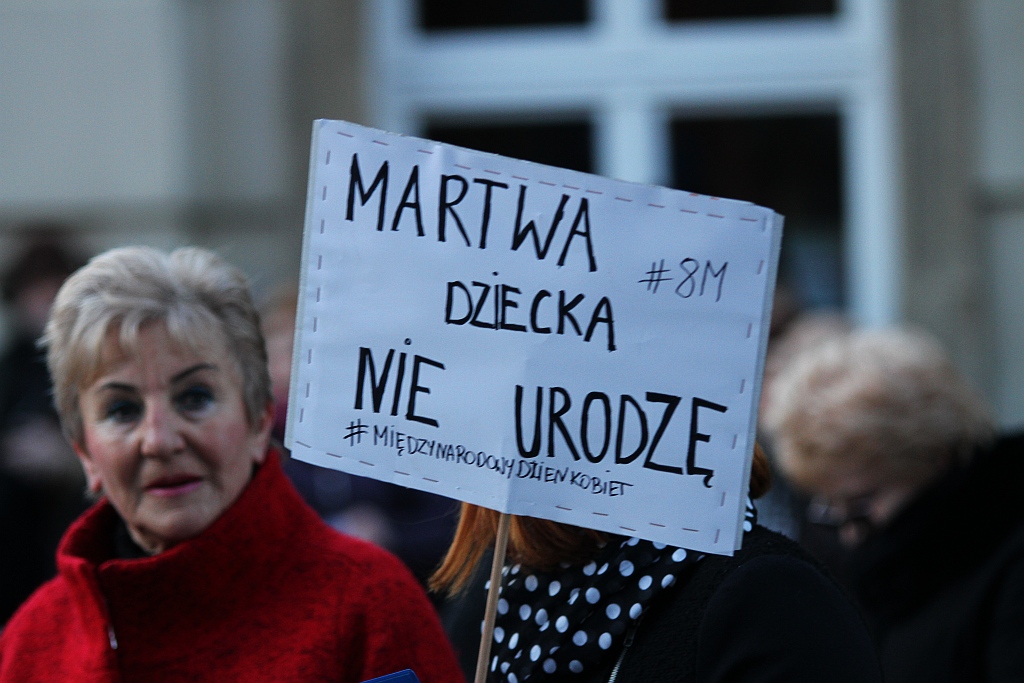 MARTWA
#8M
DZIECKA
NIE URODZĘ
#MIĘDZYNARODOWYDZIEŃKOBIET